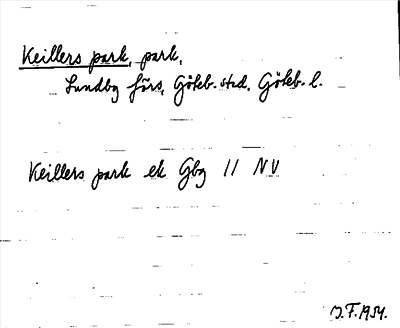 Keillers park, park,
Lundby förs, Göteb. stad. Göteb. l.
Keillers park ek Gbg 11 NV
D.F. 1954.